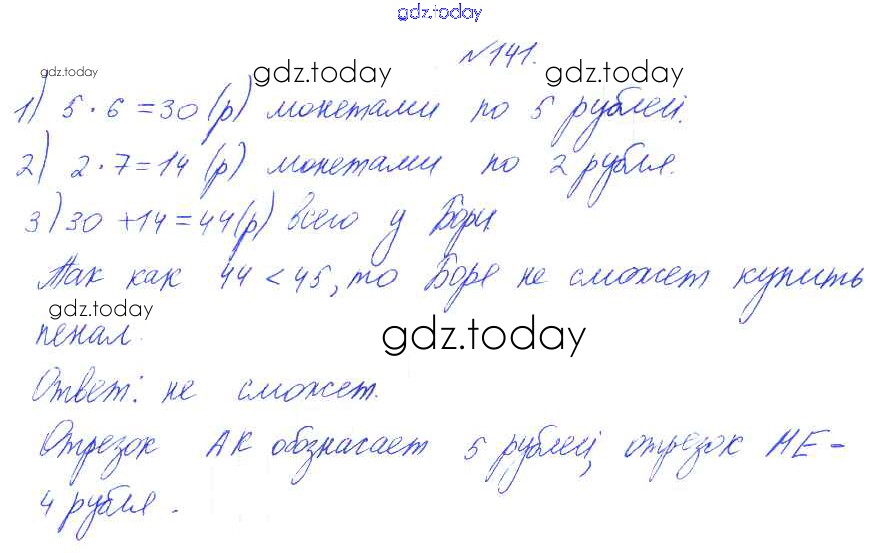 gdz.today
№141.
gdz.today gdz.today gdz.today
1) 5 · 6 = 30 (р) монетами по 5 рублей.
2) 2 · 7 = 14 (р) монетами по 2 рубля.
3) 30 + 14 = 44 (р) всего у Бори
Так как 44 < 45, то Боре не сможет купить
gdz.today
пенал.
gdz.today
Ответ: не сможет.
Отрезок АК обозначает 5 рублей, отрезок МЕ -
4 рубля.